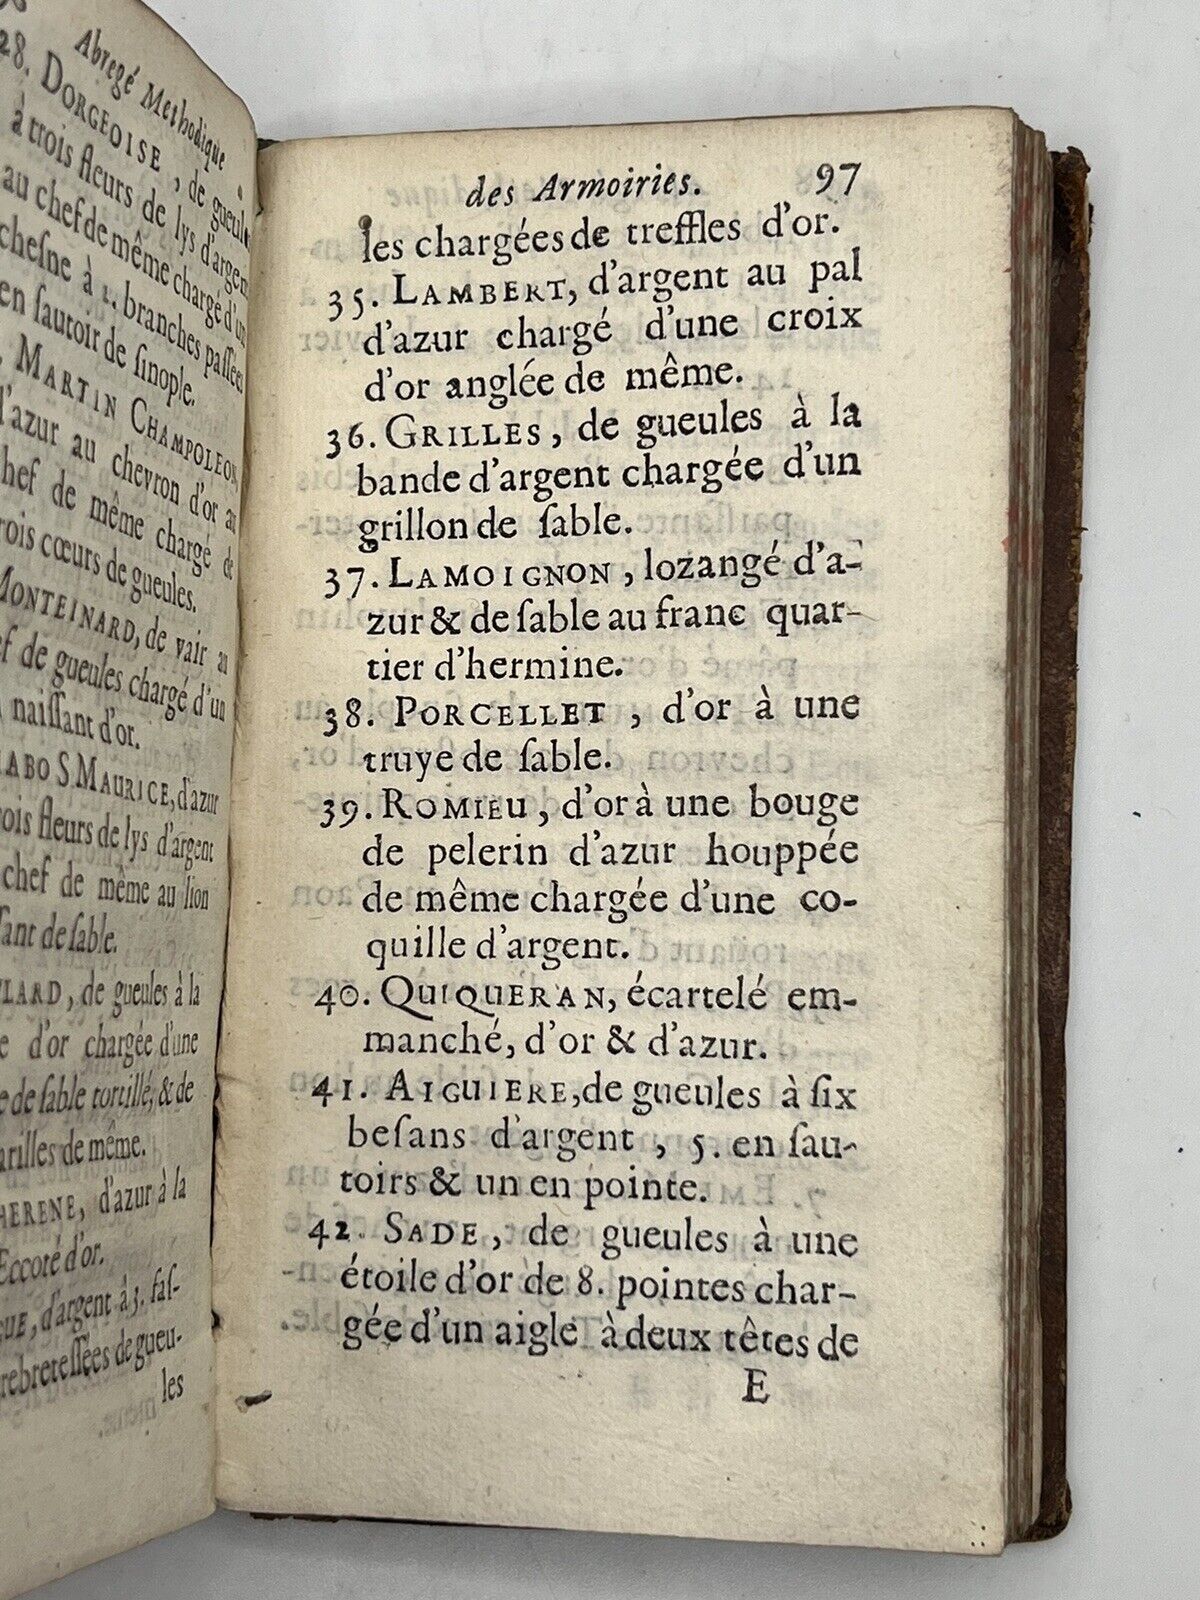 Abregé Methodique
28. DORGEOISE, de gueules
à trois fleurs de lys d'argent
au chef de même chargé d'un
chesne à 2. branches passées
en ſautoir de ſinople.
MARTIN CHAMPOLEON,
d'azur au chevron d'or au
chef de même chargé de
trois cœurs de gueules.
MONTEINARD, de vair au
de gueules chargé d'un
naiſſant d'or.
S. MAURICE, d'azur
trois fleurs de lys d'argent
chef de même au lion
de ſable.
de gueules à la
d'or chargée d'une
de ſable tortillé, & de
de même.
d'azur à la
Eccoté d'or.
d'argent à 3. faſ-
de gueu-
les
des Armoiries. 97
les chargées de treffles d'or.
35. LAMBERT, d'argent au pal
d'azur chargé d'une croix
d'or anglée de même.
36. GRILLES, de gueules à la
bande d'argent chargée d'un
grillon de ſable.
37. LAMOIGNON, lozangé d'a-
zur & de ſable au franc quar-
tier d'hermine.
38. PORCELLET, d'or à une
truye de ſable.
39. ROMIEU, d'or à une bouge
de pelerin d'azur houppée
de même chargée d'une co-
quille d'argent.
40. QUIQUERAN, écartelé em-
manché, d'or & d'azur.
41. AIGUIERE, de gueules à ſix
beſans d'argent, 5. en ſau-
toirs & un en pointe.
42. SADE, de gueules à une
étoile d'or de 8. pointes char-
gée d'un aigle à deux têtes de
E